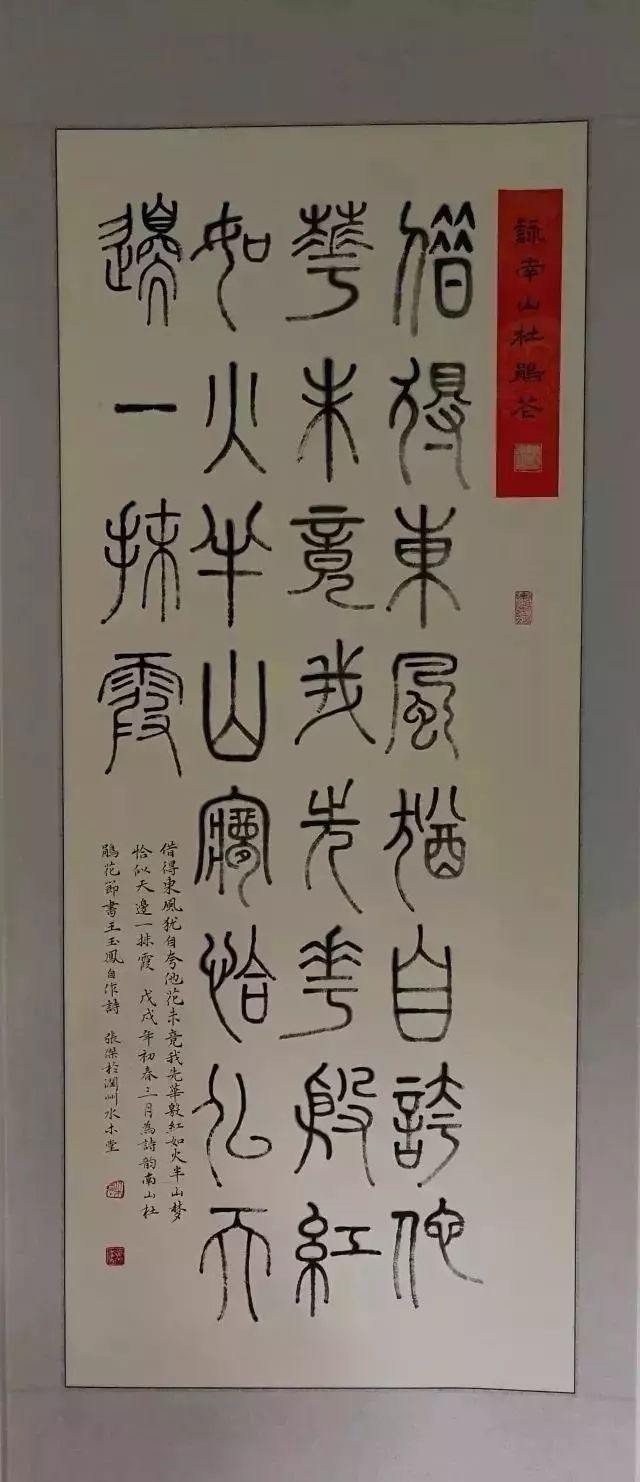 詠南山杜鵑花
借得東風猶自誇他
華未竟我先華殷紅
如火半山寱恰佀天
邊一抹霞
借得東風犹自夸他花未竟我先華殷紅如火半山梦
恰似天邊一抹霞 戊戌年初春三月為詩韵南山杜
鵑花節書王玉鳳自作詩 張傑於潤州水木堂